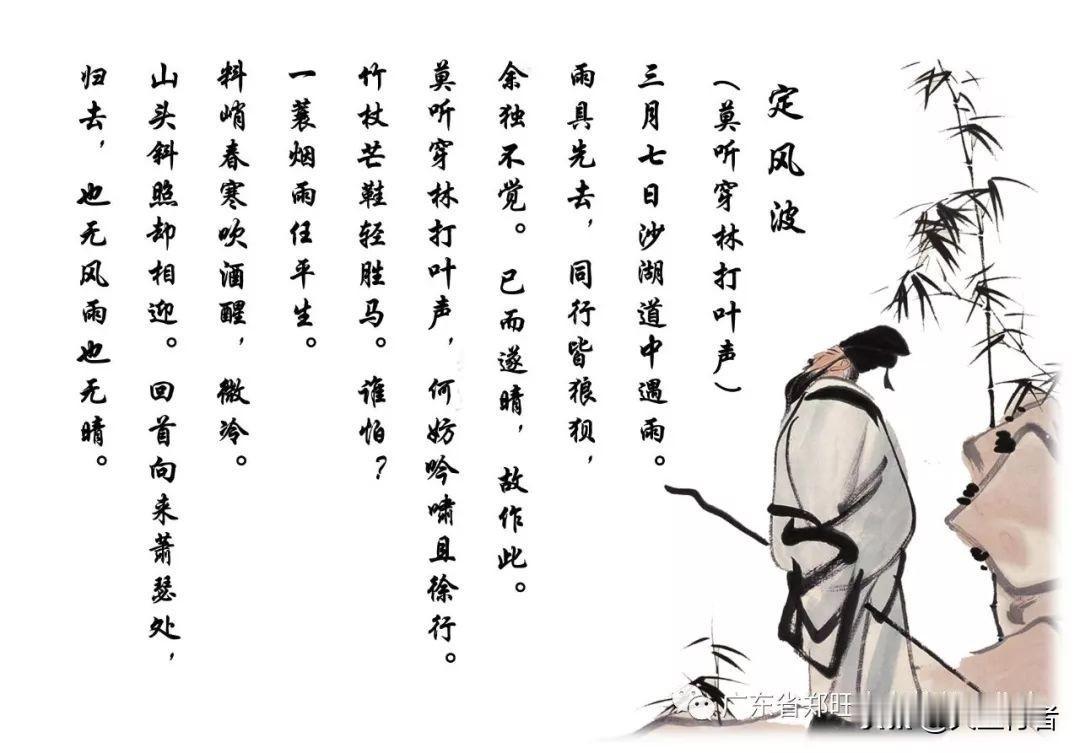 定风波
（莫听穿林打叶声）
三月七日沙湖道中遇雨。
雨具先去，同行皆狼狈，
余独不觉。已而遂晴，故作此。
莫听穿林打叶声，何妨吟啸且徐行。
竹杖芒鞋轻胜马。谁怕？
一蓑烟雨任平生。
料峭春寒吹酒醒，微冷。
山头斜照却相迎。回首向来萧瑟处，
归去，也无风雨也无晴。
广东省郑旺